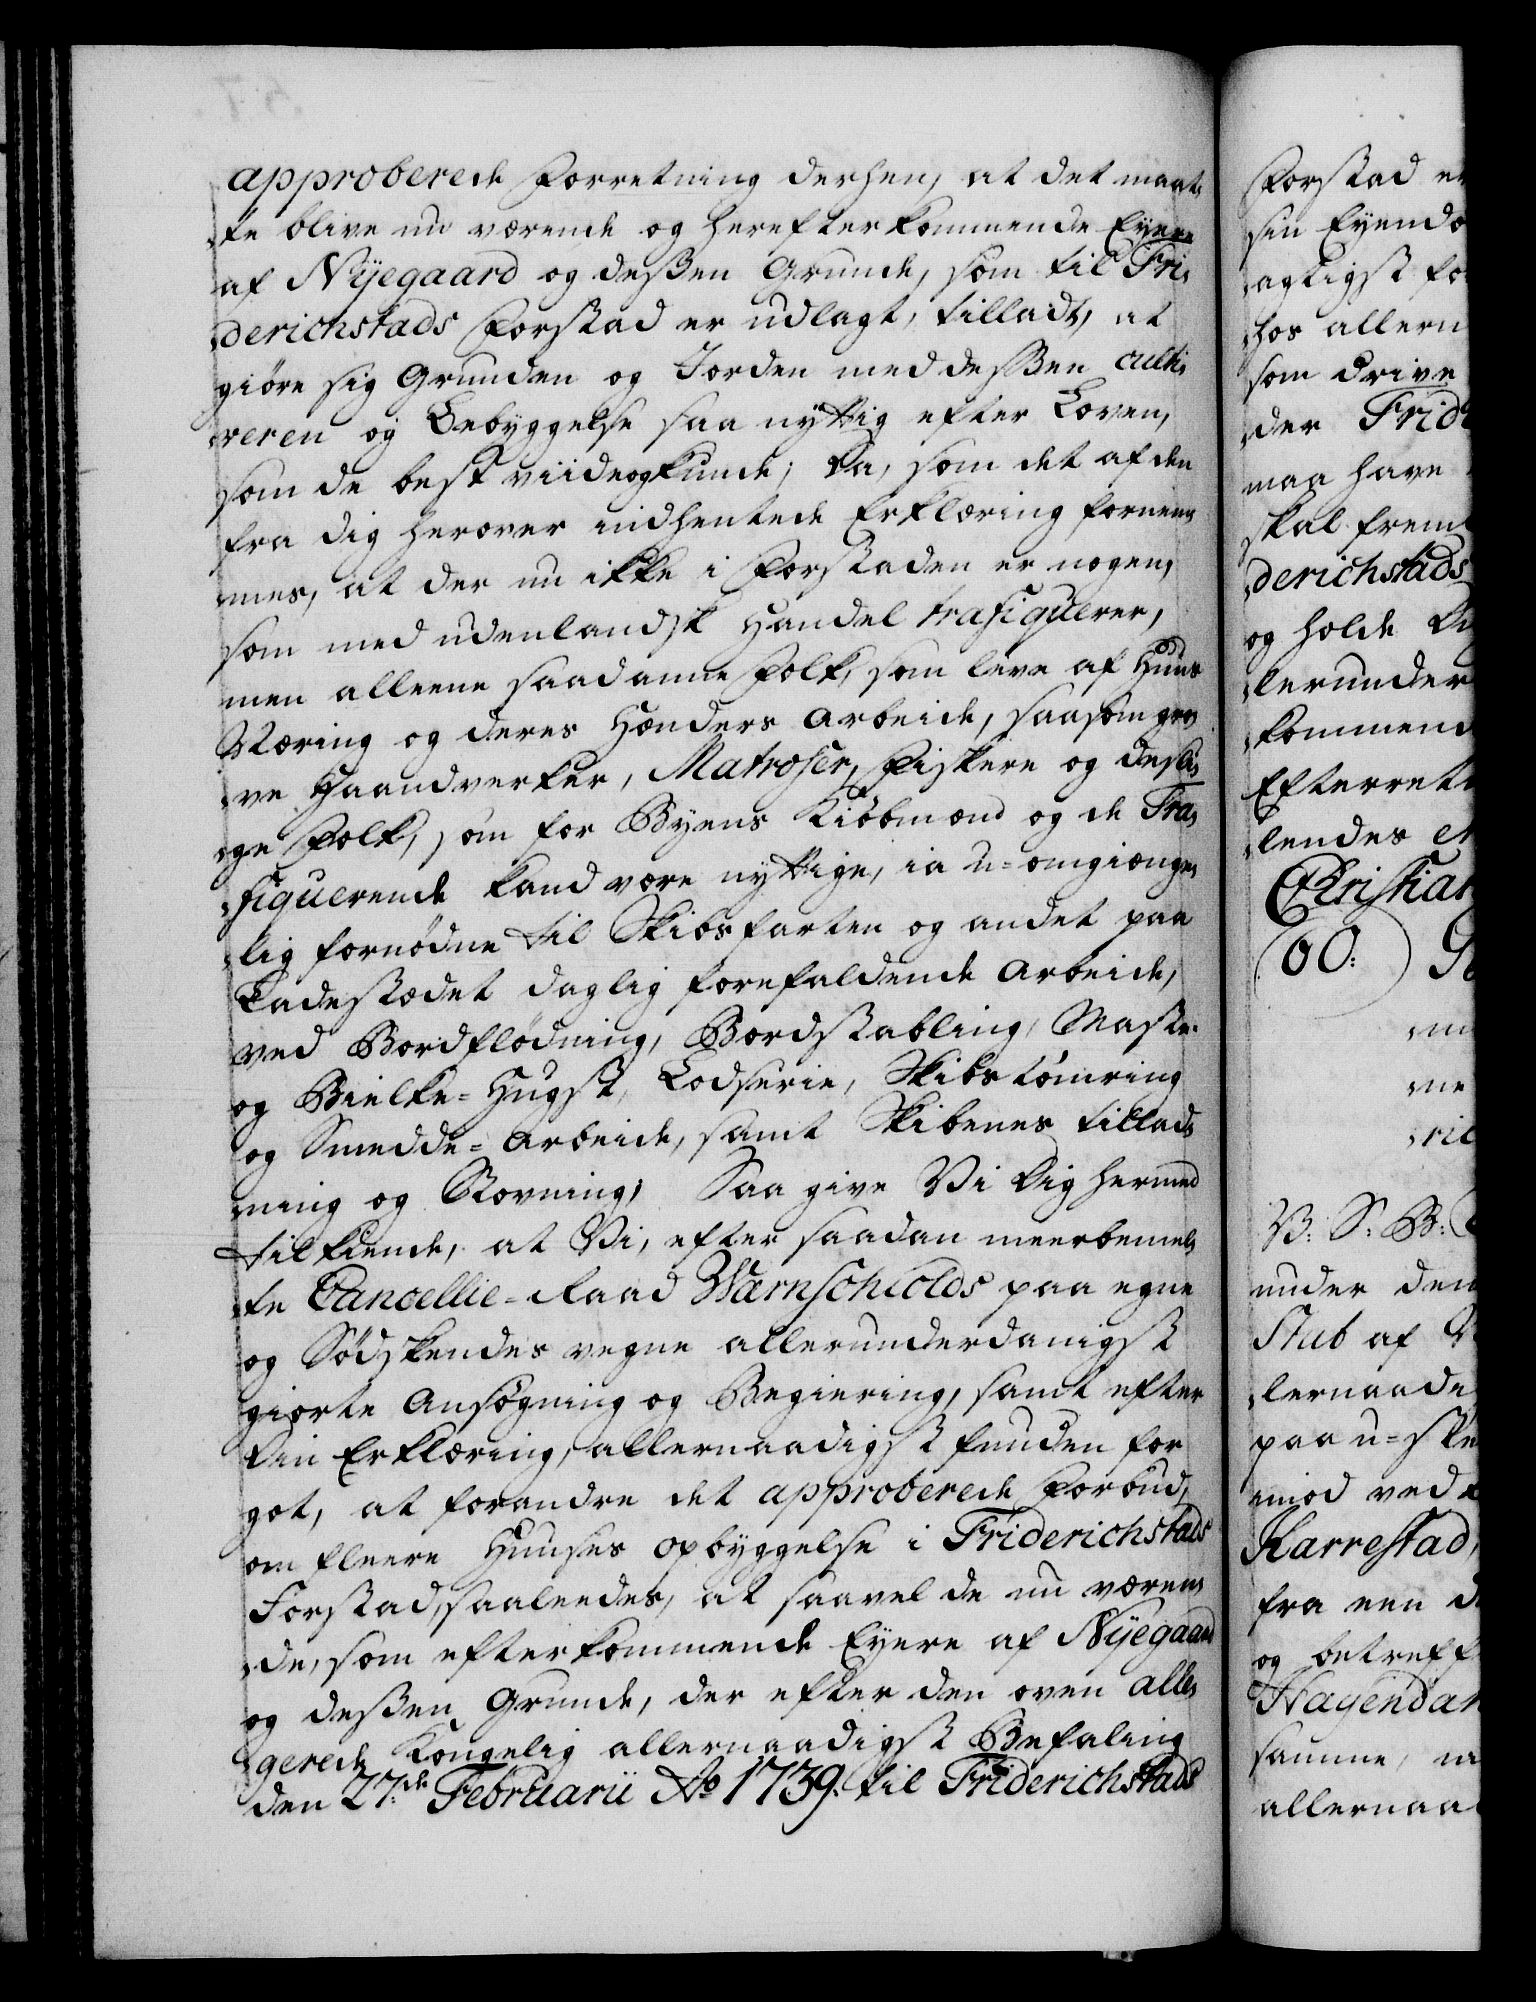 approberede Forretning derhen, at det maat,
,te blive nu værende og herefterkommende Eyere
af Nÿegaard og deßen Grunde, som til Fri,
,derichstads Forstad er udlagt, tilladt, at
giøre sig Grunden og Jorden med deßen culti,
,veren og Bebyggelse saa nyttig efter Loven,
som de best viide og kunde; Da, som det af den
fra dig herover indhentede Erklæring fornem,
,mes, at der nu ikke i Forstaden er nogen,
som med udenlandsk Handel trafiquerer,
men alleene saadanne Folk, som leve af Huus
Næring og deres Hænders Arbeide, saasom gro,
,ve Haandverker, Matroser, Fiskere og desli,
,ge Folk, som for Byens Kiøbmænd og de Tra,
,fiquerende kand være nyttige, ia u-omgiænge,
,lig fornødne til Skibsfarten og andet paa
Ladestædet daglig forefaldende Arbeide,
ved Bordflødning, Bordstabling, Maste-
og Bielke-Hugst, Lodserie, Skibstømring
og Smedde-Arbeide, samt Skibenes tillad,
,ning og Stovning; Saa give Vi Dig hermed
tilkiende, at Vi, efter saadan meerbemel,
,te Cancellie-Raad Wærnschiolds paa egne
og Sødskendes vegne allerunderdanigst
giorte Ansøgning og Begiering, samt efter
Din Erklæring, allernaadigst funden for
got, at forandre det approberede Forbud,
om fleere Huuses opbyggelse i Friderichstads
Forstad, saaleedes, at saavel de nu væren,
,de, som efterkommende Eyere af Nÿegaard
og deßen Grunde, der efter den oven alle,
,gerede Kongelig allernaadigst Befaling
den 27de Februarii Ao 1739. til Friderichstads
Forstad er
sin Eyendo
,agtigst fo
hos allern
som drive
,der Frid
maa have
skal frem
,derichstads
og holde Di
,lerunder
,kommend
Efterrett
,lendes
Christian
60:
,ne
,ril
V: S: B:
under den
Stub af
,lernaadi
paa u-ske
imod ved
Karrestad,
fra een
og betreff
Hayendan
samme,
allernaa